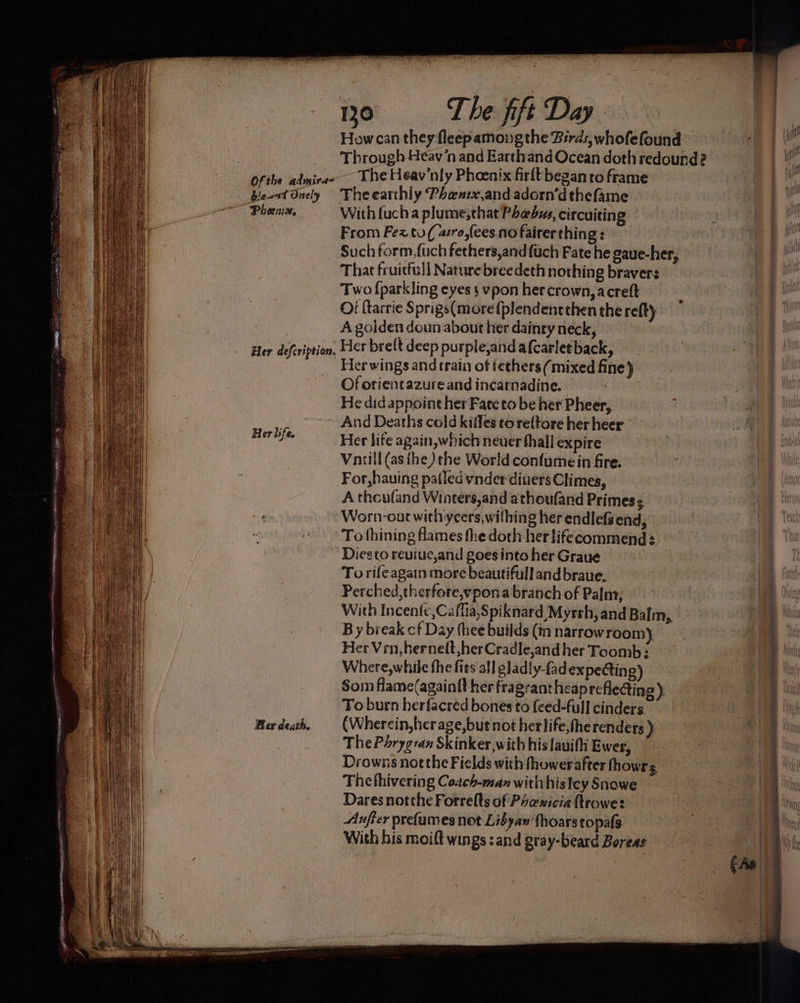 130 The fift Day
How can they ſleep among the Birds, whoſe ſound
Through Heav'n and Earth and Ocean doth redound?
Of the admira-
ble and Onely
Phœnix.
The Heav'nly Phœnix firſt began to frame
The earthly Phœnix, and adorn'd the ſame
With ſuch a plume, that Phœbus, circuiting
From Fez to Cairo, ſees no fairer thing:
Such form, ſuch fethers, and ſuch Fate he gaue-her,
That fruitfull Nature breedeth nothing braver:
Two ſparkling eyes; vpon her crown, a creſt
Of ſtarrie Sprigs (more ſplendent then the reſt)
A golden doun about her dainty neck,
Her deſcription.
Her breſt deep purple, and a ſcarlet back,
Her wings and train of fethers (mixed fine)
Of orient azure and incarnadine.
He did appoint her Fate to be her Pheer,
And Deaths cold kiſſes to reſtore her heer
Her life.
Her life again, which neuer ſhall expire
Vntill (as ſhe) the World conſume in fire.
For, hauing paſſed vnder diuers Climes,
A thouſand Winters, and a thouſand Primes;
Worn-out with yeers, wiſhing her endleſs end,
To ſhining flames ſhe doth her life commend:
Dies to reuiue, and goes into her Graue
To riſe again more beautifull and braue.
Perched, therfore, vpon a branch of Palm,
With Incenſe, Caſſia, Spiknard, Myrrh, and Balm,
By break of Day ſhee builds (in narrow room)
Her Vrn, her neſt, her Cradle, and her Toomb:
Where, while ſhe ſits all gladly-ſad expecting)
Som flame (againſt her fragrant heap reflecting)
To burn her ſacred bones to ſeed-full cinders
Her death.
(Wherein, her age, but not her life, ſhe renders)
The Phrygian Skinker, with his lauiſh Ewer,
Drowns not the Fields with ſhower after ſhowr;
The ſhivering Coach-man with his Icy Snowe
Dares not the Forreſts of Phœnicia ſtrowe:
Auſter preſumes not Libyan ſhoars to paſs
With his moiſt wings: and gray-beard Boreas
(As